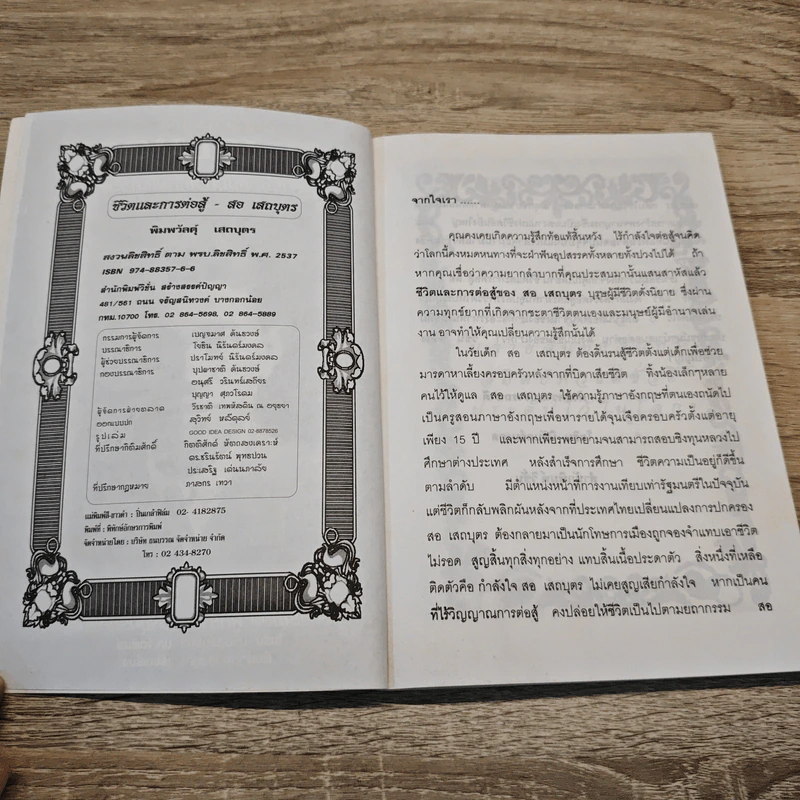 ชีวิตและการต่อสู้ - สอ เสถบุตร
พิมพวัลคุ์ เสถบุตร
สงวนลิขสิทธิ์ ตาม พรบ.ลิขสิทธิ์ พ.ศ. 2537
ISBN 974-88357-6-6
สำนักพิมพ์วิชั่น สร้างสรรค์ปัญญา
481/561 ถนน จรัญสนิทวงศ์ บางกอกน้อย
กทม.10700 โทร. 02 864-5698, 02 864-5889
กรรมการผู้จัดการ เบญจมาศ ตันธวงษ์
บรรณาธิการ โจธิน นิรินดร์มงคล
ผู้ช่วยบรรณาธิการ ปราโมทย์ นิรินดร์มงคล
กองบรรณาธิการ บุปผาชาติ ตันธวงษ์
อนุศรี วรินทร์เสถียร
บุญญา สุภวโรดม
ผู้จัดการฝ่ายตลาด วีรชาติ เทพหัสดิน ณ อยุธยา
ออกแบบปก สุวิทย์
รูปเล่ม GOOD IDEA DESIGN 02-8878526
ที่ปรึกษากิติมศักดิ์ กิตติศักดิ์
ดร.ชรินรัตน์ พุทธปวน
ประเสริฐ
ที่ปรึกษากฎหมาย ภาสกร เทวา
แม่พิมพ์สี-ขาวดำ : ปิ่นเกล้าฟิล์ม 02- 4182875
พิมพ์ที่ : พิทักษ์อักษรการพิมพ์
จัดจำหน่ายโดย : บริษัท ธนบรรณ จัดจำหน่าย จำกัด
โทร : 02 434-8270
จากใจเรา ......
คุณคงเคยเกิดความรู้สึกท้อแท้สิ้นหวัง ไร้กำลังใจต่อสู้จนคิด
ว่าโลกนี้คงหมดหนทางที่จะฝ่าฟันอุปสรรคทั้งหลายทั้งปวงไปได้ ถ้า
หากคุณเชื่อว่าความยากลำบากที่คุณประสบมานั้นแสนสาหัสแล้ว
ชีวิตและการต่อสู้ของ สอ เสถบุตร บุรุษผู้มีชีวิตดั่งนิยาย ซึ่งผ่าน
ความทุกข์ยากที่เกิดจากชะตาชีวิตตนเองและมนุษย์ผู้มีอำนาจเล่น
งาน อาจทำให้คุณเปลี่ยนความรู้สึกนั้นได้
ในวัยเด็ก สอ เสถบุตร ต้องดิ้นรนสู้ชีวิตตั้งแต่เด็กเพื่อช่วย
มารดาหาเลี้ยงครอบครัวหลังจากที่บิดาเสียชีวิต ทิ้งน้องเล็กๆหลาย
คนไว้ให้ดูแล สอ เสถบุตร ใช้ความรู้ภาษาอังกฤษที่ตนเองถนัดไป
เป็นครูสอนภาษาอังกฤษเพื่อหารายได้จุนเจือครอบครัวตั้งแต่อายุ
เพียง 15 ปี และพากเพียรพยายามจนสามารถสอบชิงทุนหลวงไป
ศึกษาต่างประเทศ หลังสำเร็จการศึกษา ชีวิตความเป็นอยู่ก็ดีขึ้น
ตามลำดับ มีตำแหน่งหน้าที่การงานเทียบเท่ารัฐมนตรีในปัจจุบัน
แต่ชีวิตก็กลับพลิกผันหลังจากที่ประเทศไทยเปลี่ยนแปลงการปกครอง
สอ เสถบุตร ต้องกลายมาเป็นนักโทษการเมืองถูกจองจำแทบเอาชีวิต
ไม่รอด สูญสิ้นทุกสิ่งทุกอย่าง แทบสิ้นเนื้อประดาตัว สิ่งหนึ่งที่เหลือ
ติดตัวคือ กำลังใจ สอ เสถบุตร ไม่เคยสูญเสียกำลังใจ หากเป็นคน
ที่ไร้วิญญาณการต่อสู้ คงปล่อยให้ชีวิตเป็นไปตามยถากรรม สอ